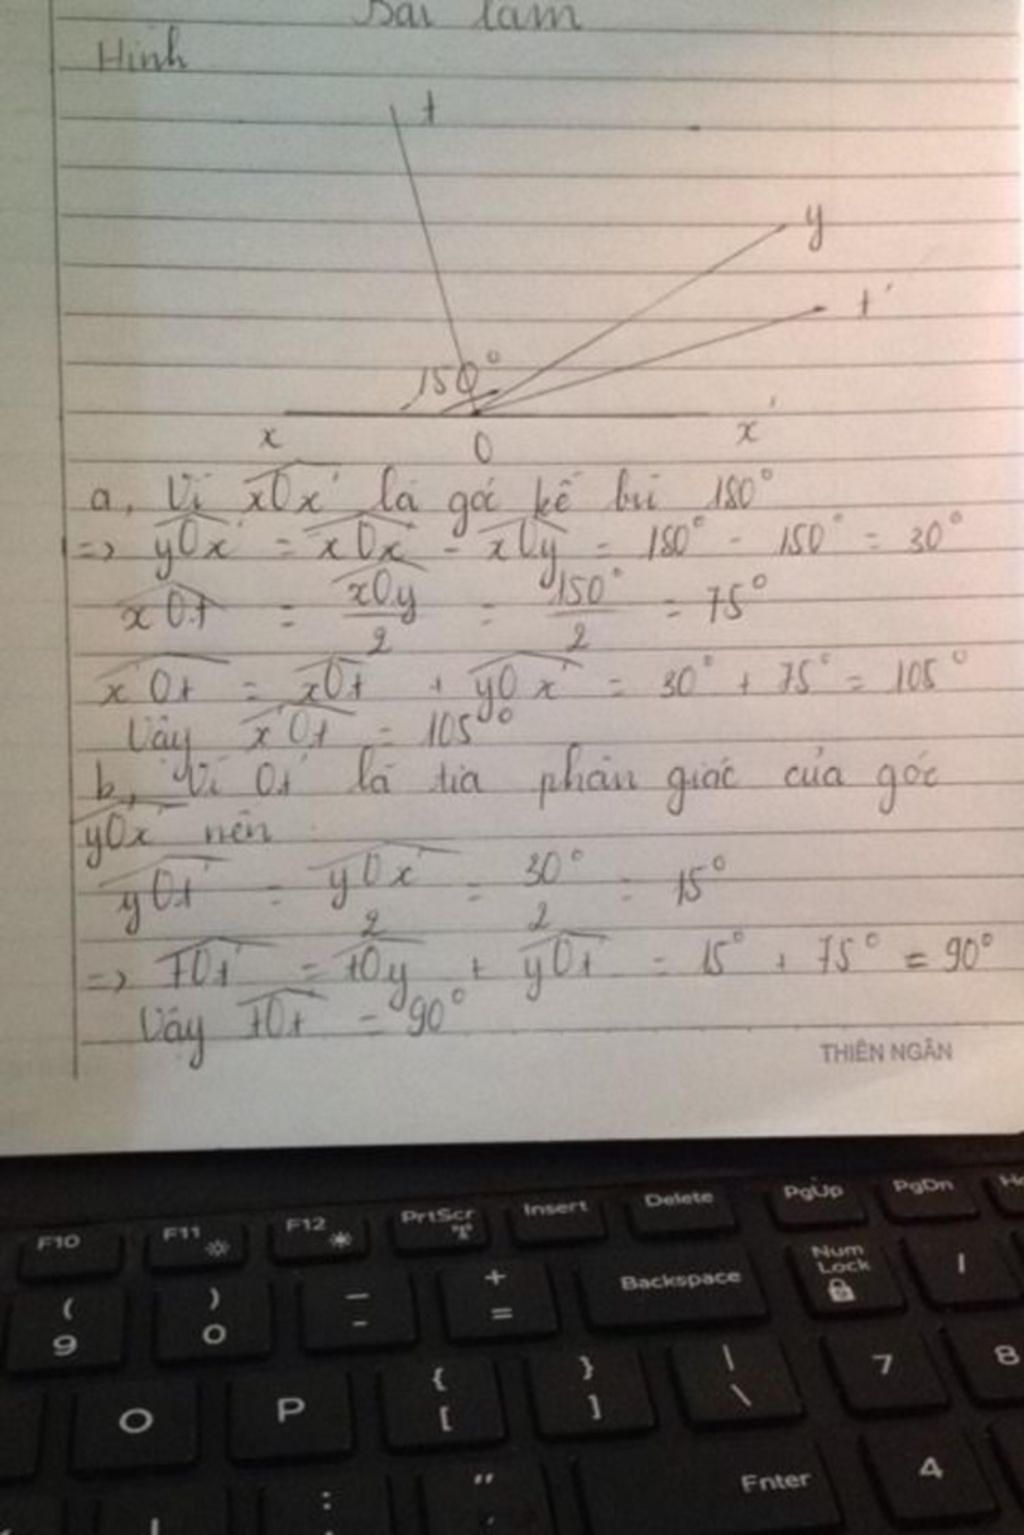 Bài làm
Hình
t
y
t'
150°
x
O
x'
a, Vì xOx' là góc kề bù 180°
=> yOx' = xOx' - xOy = 180° - 150° = 30°
xOt = xOy/2 = 150°/2 = 75°
x'Ot = xOt + yOx' = 30° + 75° = 105°
Vậy x'Ot = 105°
b, Vì Ot' là tia phân giác của góc
yOx' nên
yOt' = yOx'/2 = 30°/2 = 15°
=> tOt' = tOy + yOt' = 15° + 75° = 90°
Vậy tOt' = 90°
THIÊN NGÂN
F10 F11 F12 PrtScr Insert Delete PgUp PgDn
( ) _ + Backspace Num Lock /
9 0 - =
O P { [ } ] | \ 7 8
: " Enter 4